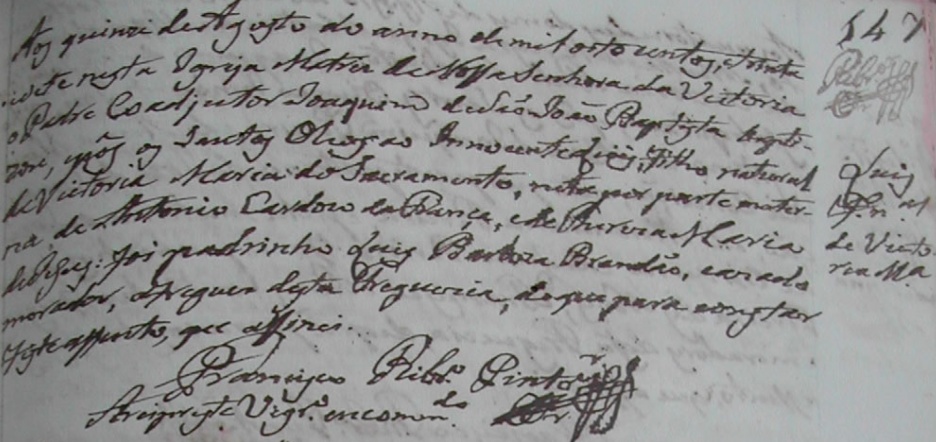 Aos quinze de Agosto do anno de mil oito centos, e trinta
e sete nesta Igreja Matriz de Nossa Senhora da Victoria
o Padre Coadjutor Joaquim de São João Baptista bapti-
zou, e pôs os Sanctos Oleos ao Innocente Luiz, filho natural
de Victoria Maria do Sacramento, neto por parte mater-
na, de Antonio Cardoso da França, e de Thereza Maria
de Jesus: foi padrinho Luis Barboza Brandão, cazado
morador, e freguez desta Freguezia, do que para constar
este assento, que assinei.
Francisco Ribr.o Pinto
Arcipreste Vigr.o encomm.do
147
Ribr.o
Luis
de Victo-
ria Ma.